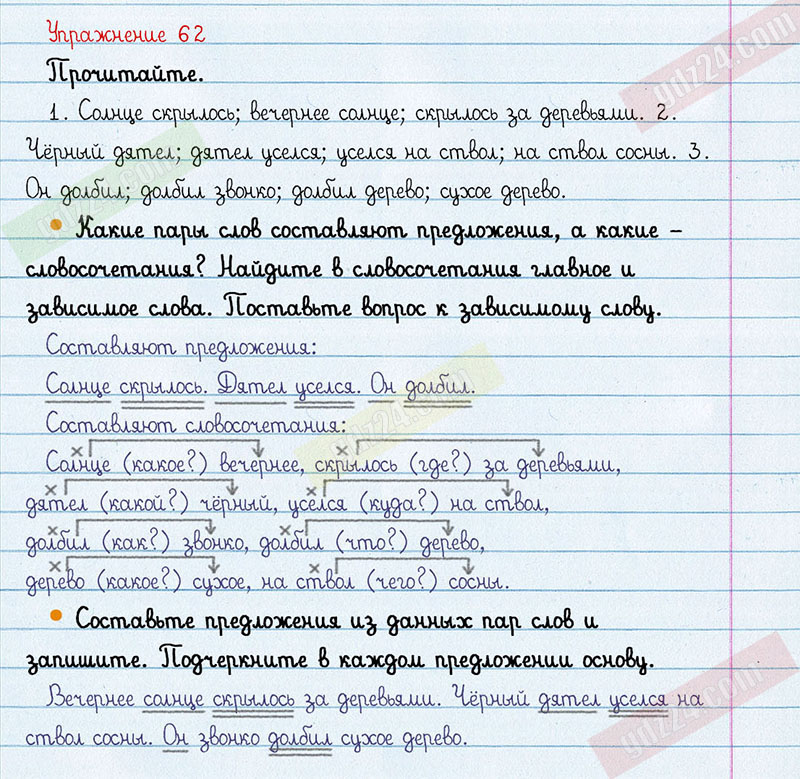 Упражнение 62
Прочитайте.
1. Солнце скрылось; вечернее солнце; скрылось за деревьями. 2.
Чёрный дятел; дятел уселся; уселся на ствол; на ствол сосны. 3.
Он долбил; долбил звонко; долбил дерево; сухое дерево.
• Какие пары слов составляют предложения, а какие –
словосочетания? Найдите в словосочетания главное и
зависимое слова. Поставьте вопрос к зависимому слову.
Составляют предложения:
Солнце скрылось. Дятел уселся. Он долбил.
Составляют словосочетания:
Солнце (какое?) вечернее, скрылось (где?) за деревьями,
дятел (какой?) чёрный, уселся (куда?) на ствол,
долбил (как?) звонко, долбил (что?) дерево,
дерево (какое?) сухое, на ствол (чего?) сосны.
• Составьте предложения из данных пар слов и
запишите. Подчеркните в каждом предложении основу.
Вечернее солнце скрылось за деревьями. Чёрный дятел уселся на
ствол сосны. Он звонко долбил сухое дерево.
gdz24.com
gdz24.com
gdz24.com
gdz24.com